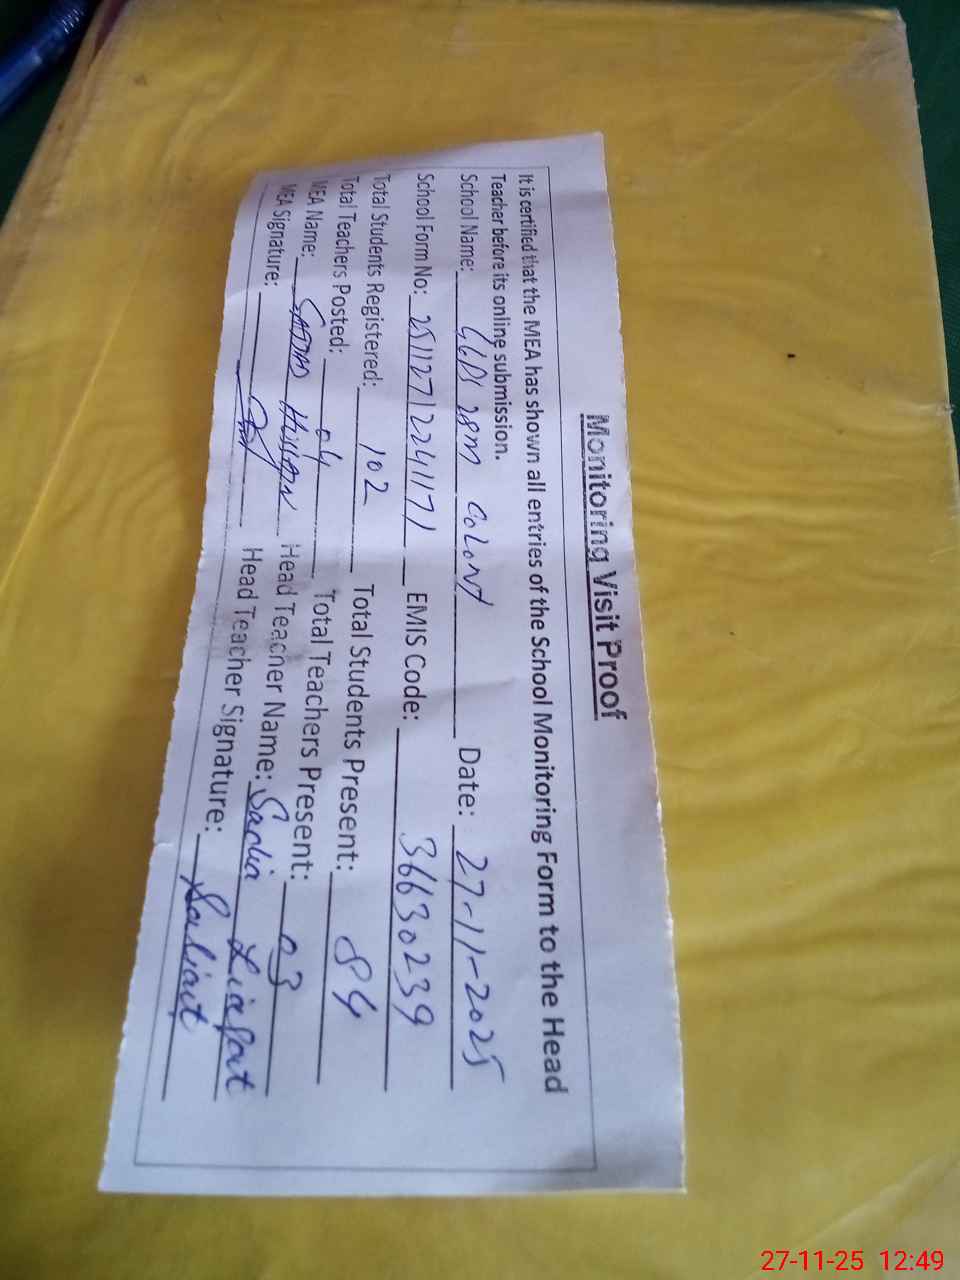 Monitoring Visit Proof
It is certified that the MEA has shown all entries of the School Monitoring Form to the Head
Teacher before its online submission.
School Name: 28M COLONY Date: 27-11-2025
School Form No: 25112712241171 EMIS Code: 36630239
Total Students Registered: 102 Total Students Present: 84
Total Teachers Posted: 04 Total Teachers Present: 03
MEA Name: Hussain Head Teacher Name: Sadia Liaqat
MEA Signature: Head Teacher Signature:
27-11-25 12:49